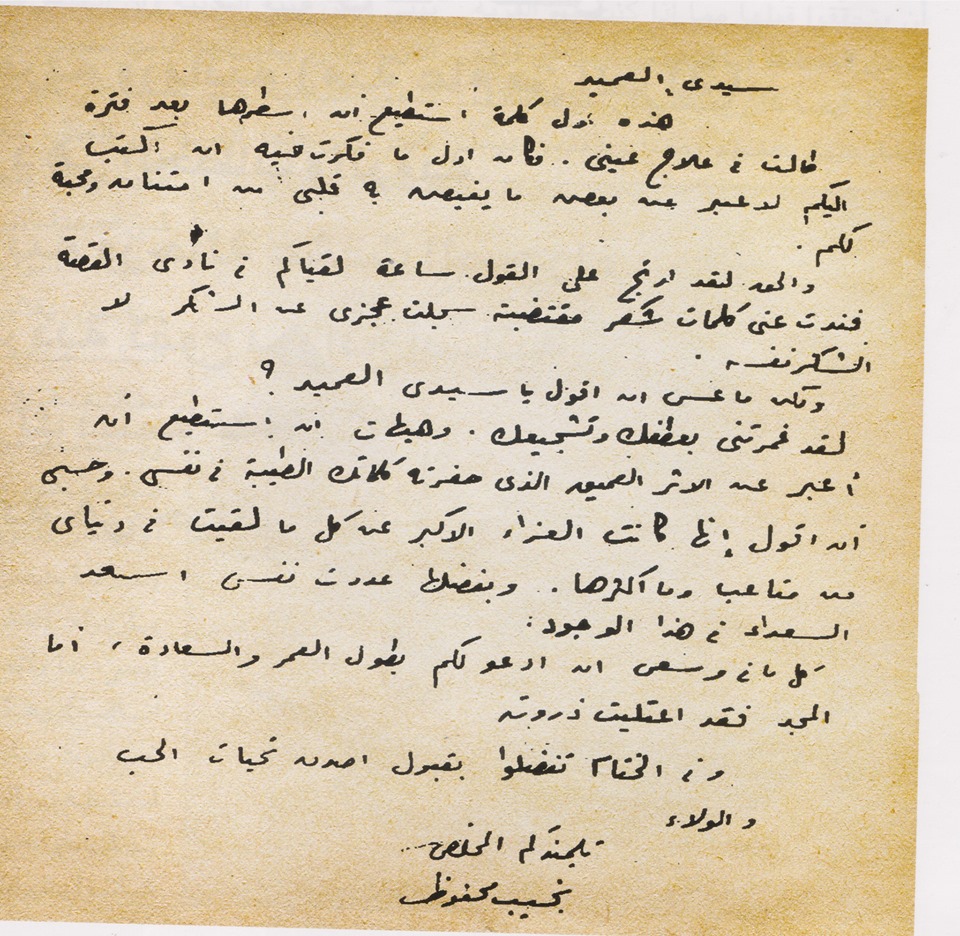 سيدى العميد
هذه أول كلمة أستطيع أن أسطرها بعد فترة
طالت فى علاج عينى. فكان اول ما فكرت فيه ان اكتب
اليكم لاعبر عن بعض ما يفيض به قلبى من امتنان ومحبة
لكم.
والحق لقد ارتج على القول ساعة لقياكم فى نادى القصة
فندت عنى كلمات شكر مقتضبة سجلت عجزى عن الشكر لا
الشكر نفسه.
ولكن ما عسى ان اقول يا سيدى العميد ؟
لقد غمرتنى بعطفك وتشجيعك. وهيهات ان أستطيع أن
أعبر عن الاثر العميق الذى حفرته كلماتك الطيبة فى نفسى. وحسبى
أن اقول إنها كانت العزاء الاكبر عن كل ما لقيت فى دنياى
من متاعب وما اكثرها. وبفضلها عددت نفسى اسعد
السعداء فى هذا الوجود.
كل ما فى وسعى ان ادعو لكم بطول العمر والسعادة، أما
المجد فقد اعتليت ذروته
وفى الختام تفضلوا بقبول اصدق تحيات الحب
والولاء
تلميذكم المخلص
نجيب محفوظ